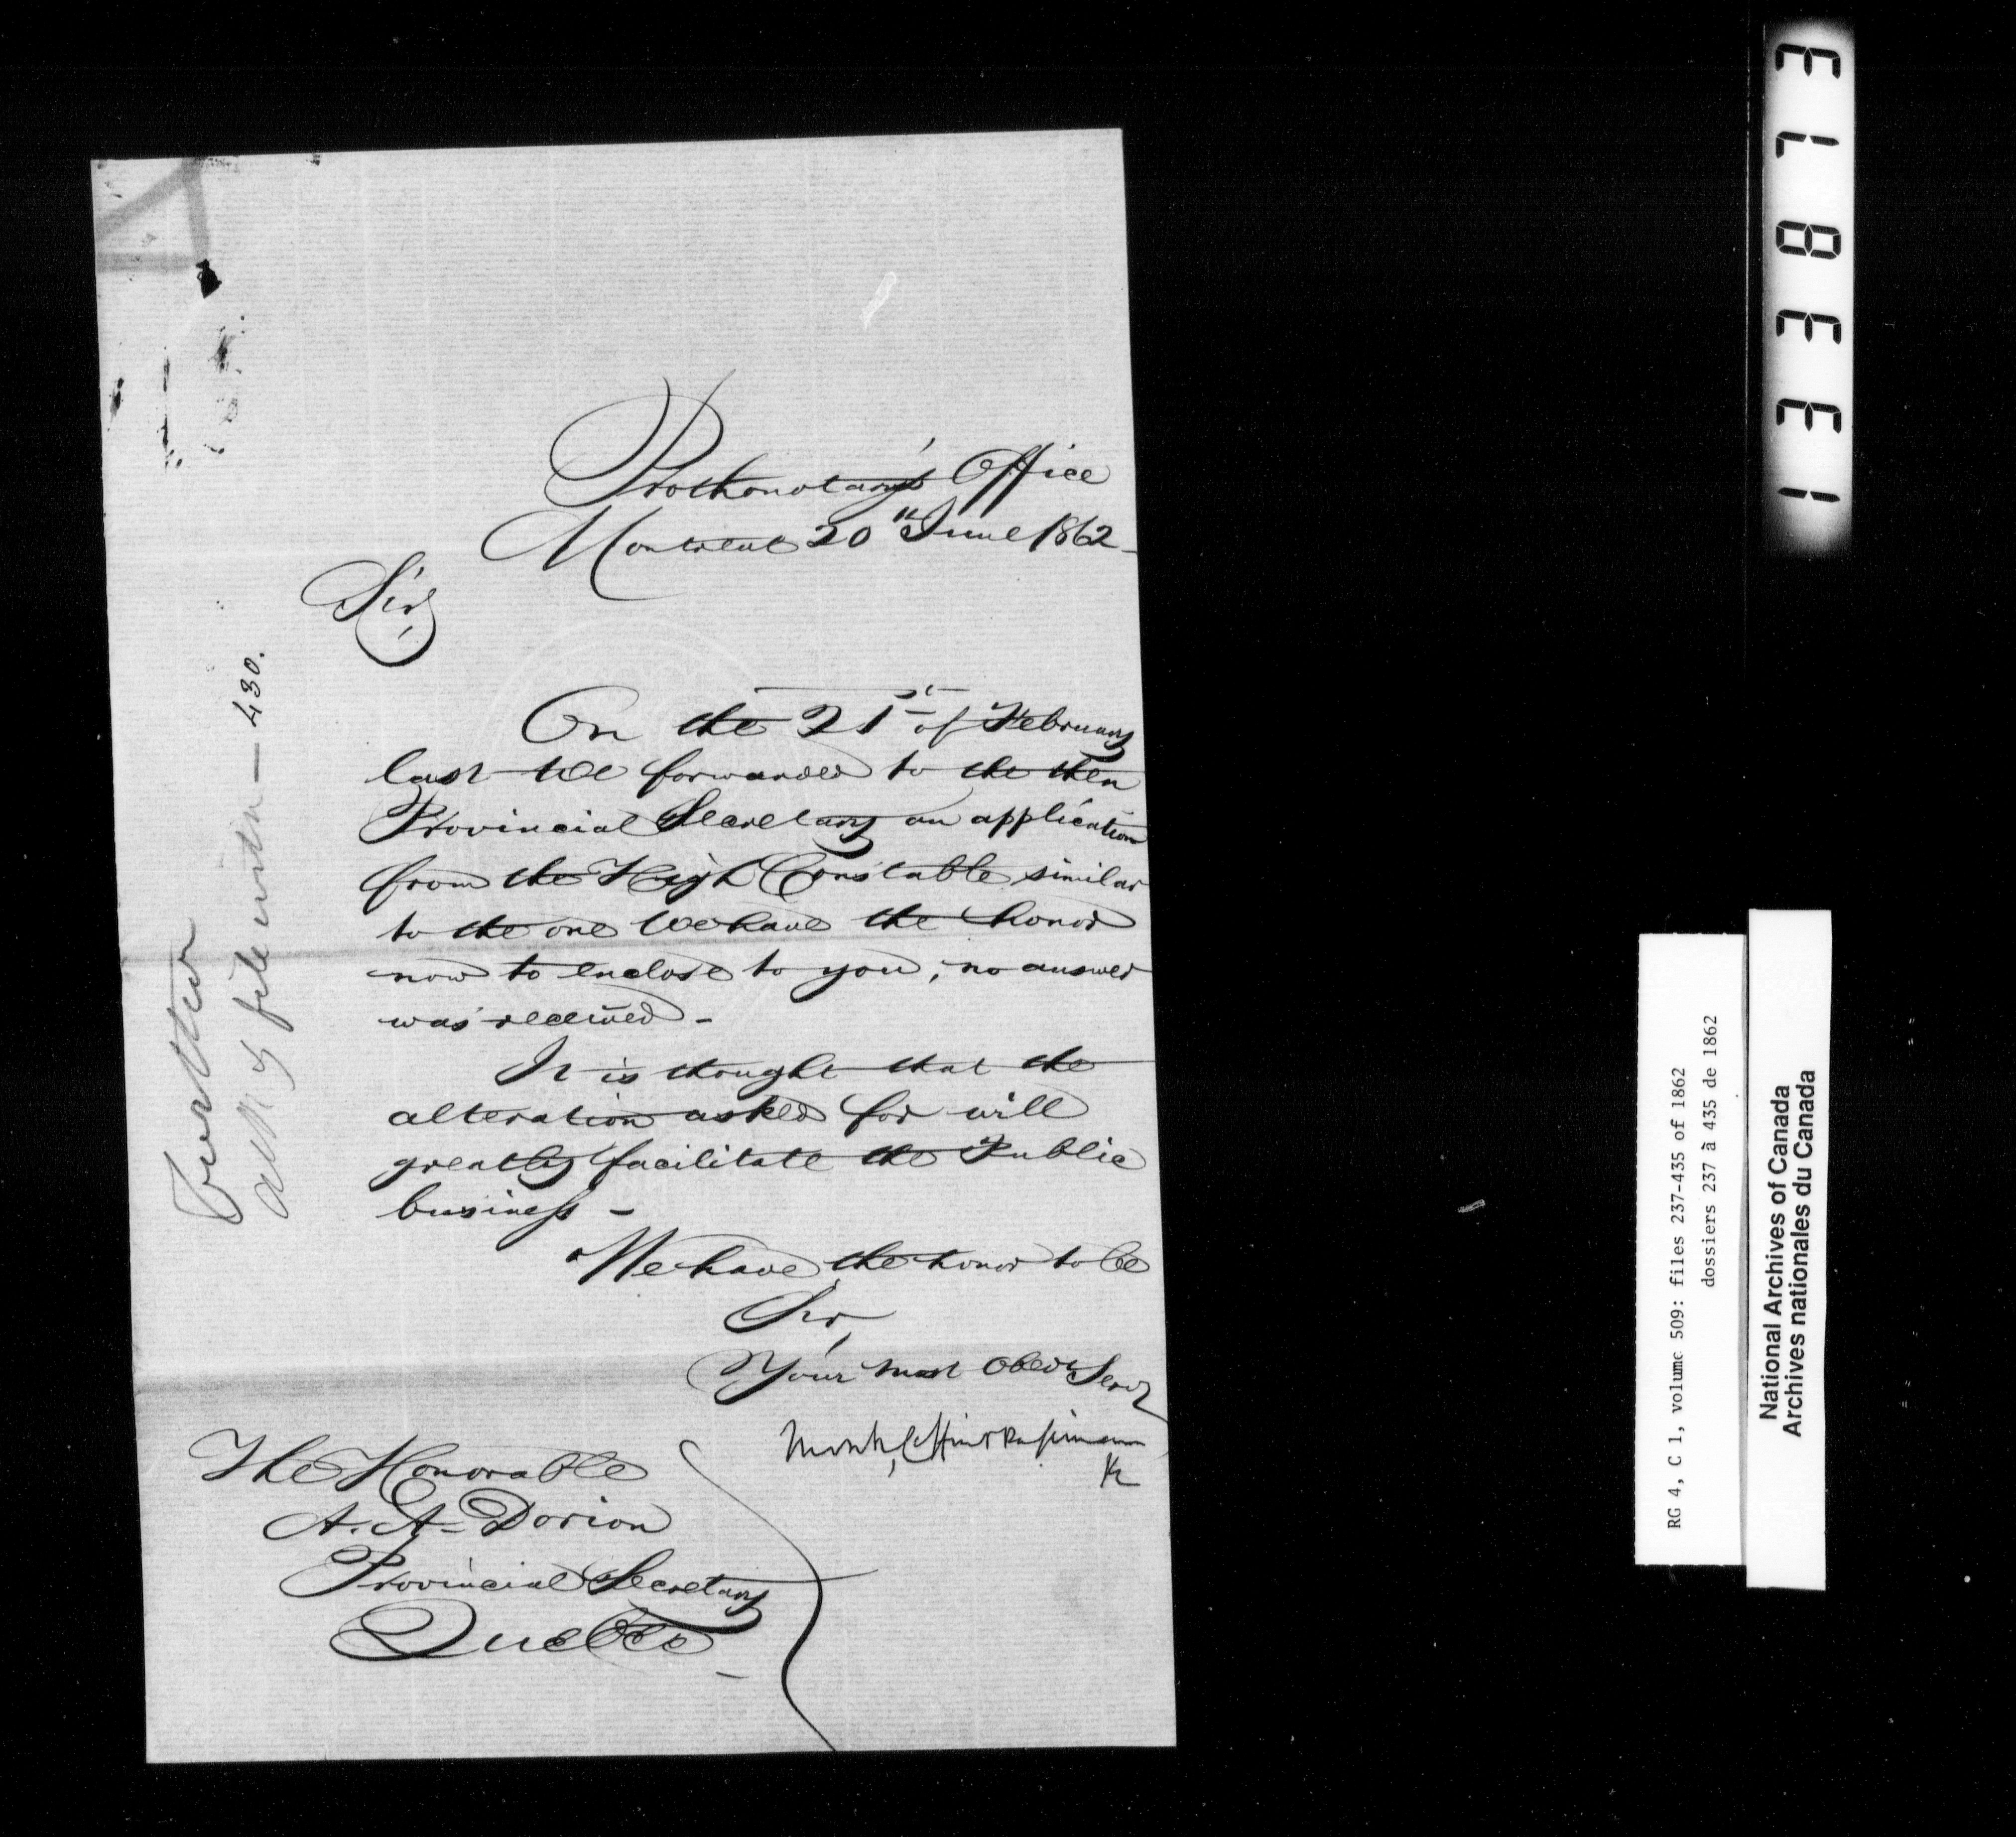 Prothonotary's Office
Montreal 20th June 1862
Sir,
On the 21st of February
last We forwarded to the then
Provincial Secretary an application
from the High Constable similar
to the one We have the honor
now to enclose to you, no answer
was received -
It is thought that the
alteration asked for will
greatly facilitate the Public
business -
We have the honor to be
Sir,
Your most Obedt Servt
Monk, Coffin & Papineau
The Honorable
A. A. Dorion
Provincial Secretary
Quebec -
& file with - 430.
133817E
RG 4, C 1, volume 509: files 237-435 of 1862
dossiers 237 à 435 de 1862
National Archives of Canada
Archives nationales du Canada